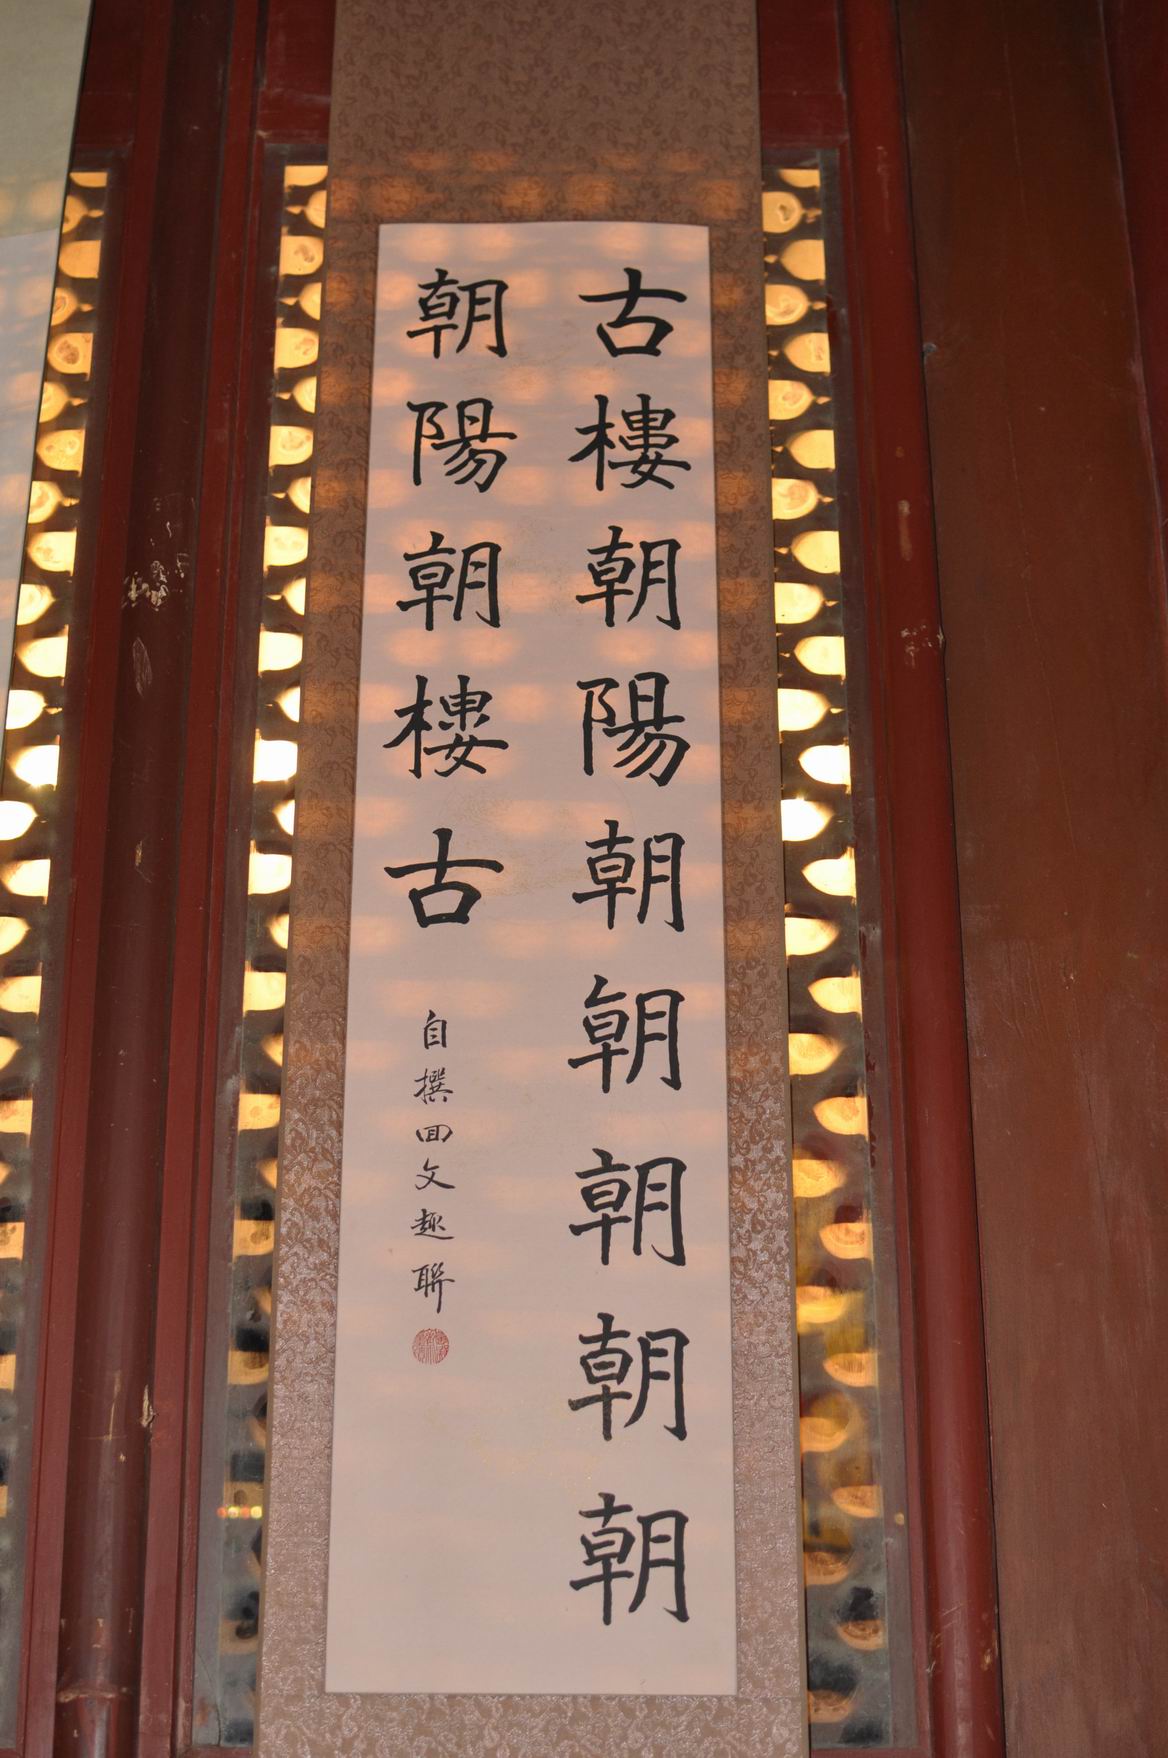 古樓朝陽朝朝朝朝朝
朝陽朝樓古
自撰回文趣聯